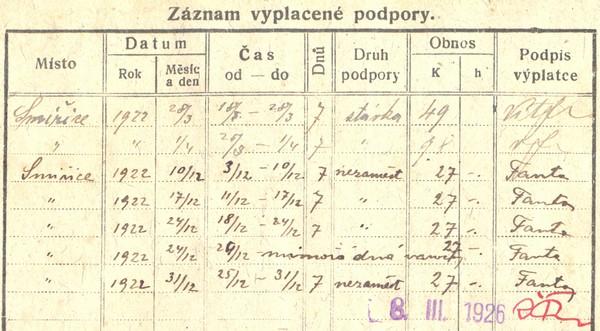 Záznam vyplacené podpory.
Místo Datum Rok Měsíc a den Čas od — do Dnů Druh podpory Obnos K h Podpis výplatce
Smiřice 1922 28/3 18/3 – 28/3 7 stávka 49
" " 1/4 – 1/4 7 " 98
Smiřice 1922 10/12 3/12 – 10/12 7 nezaměst 27 -. Fanta
" 1922 17/12 11/12 – 17/12 7 " 27 -. Fanta
" 1922 24/12 18/12 – 24/12 7 " 27 -. Fanta
" 1922 24/12 mimořádná 27 -. Fanta
" 1922 31/12 25/12 – 31/12 7 nezaměst 27 -. Fanta
8. III. 1926